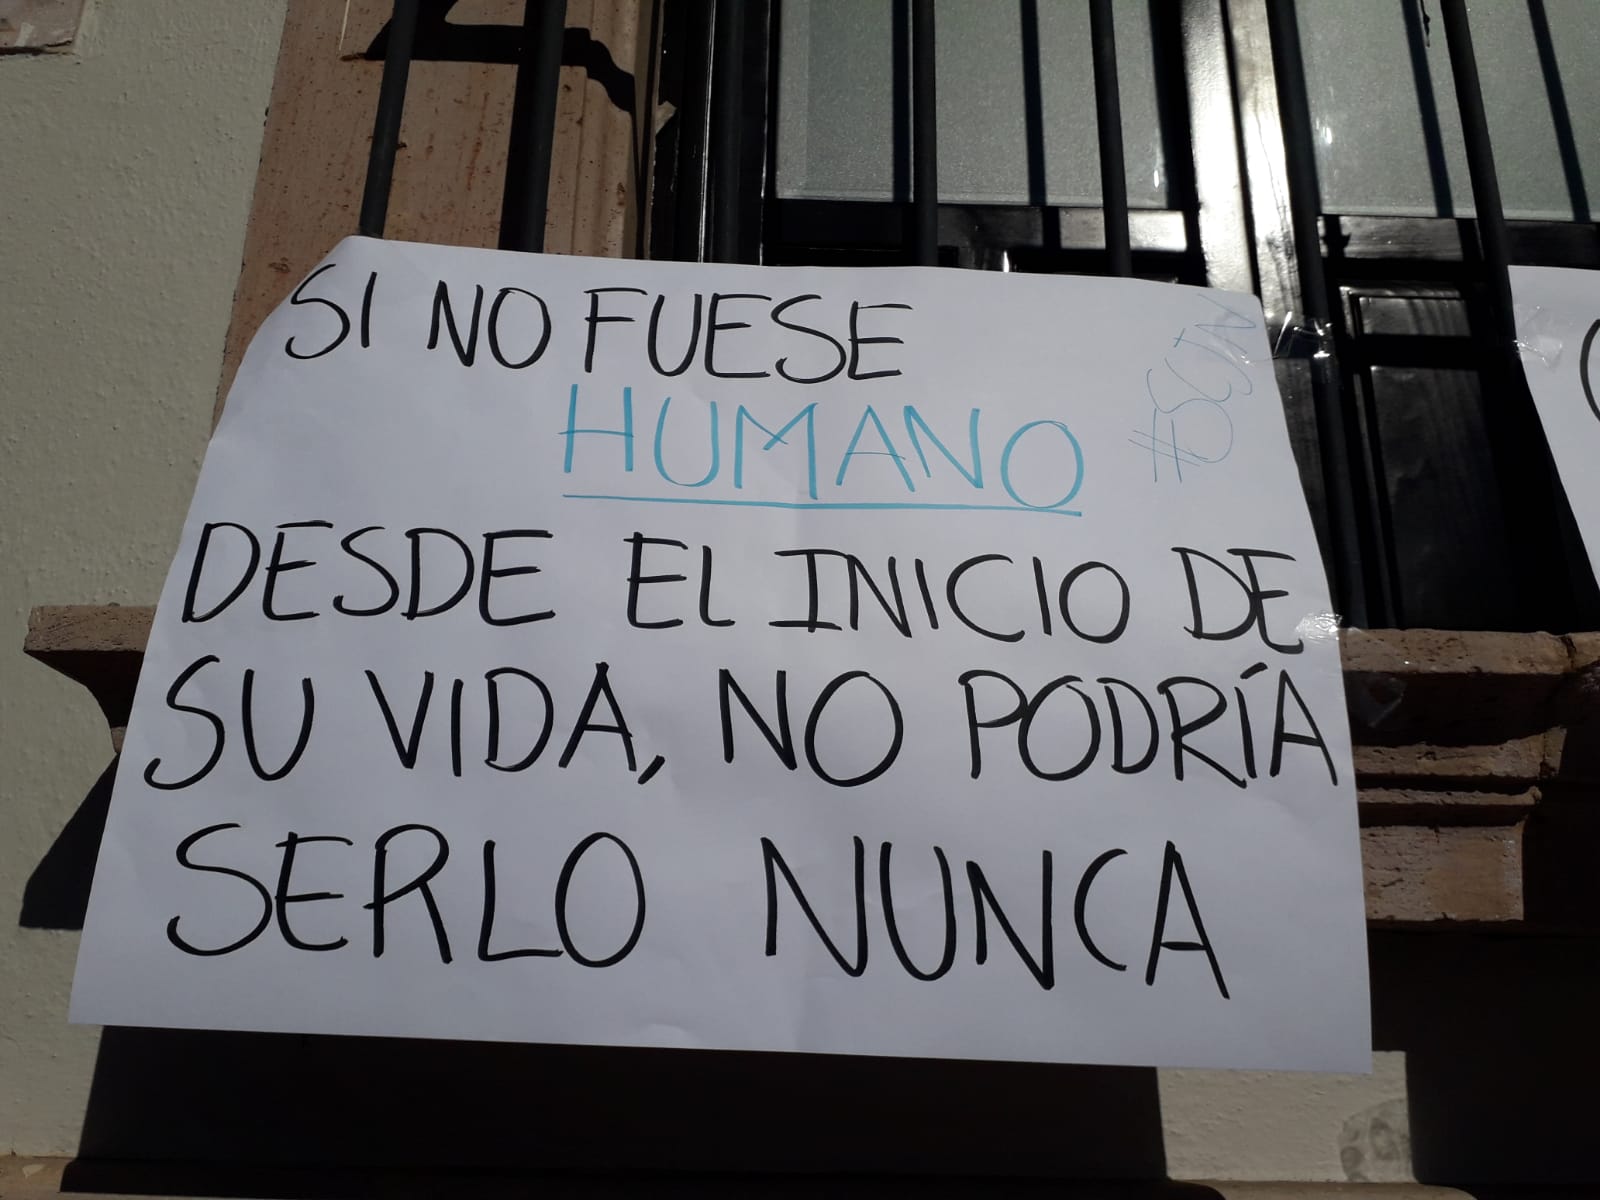 SI NO FUESE
HUMANO
DESDE EL INICIO DE
SU VIDA, NO PODRÍA
SERLO NUNCA